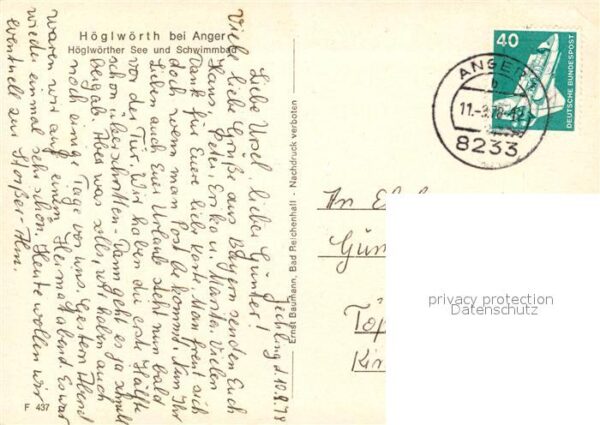 Höglwörth bei Anger
Höglwörther See und Schwimmbad
Jechling, d 10.8.78
Liebe Ursel, lieber Günter!
Viele liebe Grüße aus Bayern senden Euch
Hans, Peter, Erika u. Martha. Vielen
Dank für Eure liebe Karte. Man freut sich
doch, wenn man Post bekommt. Nun Ihr
Lieben auch Euer Urlaub steht nun bald
vor der Tür. Wir haben die erste Hälfte
schon überschritten. Dann geht es ja schnell
bergab. Aber was solls, wir haben auch
noch einige Tage vor uns. Gestern Abend
waren wir auf einem Heimatabend. Es war
wieder einmal sehr schön. Heute wollen wir
eventuell zur Stoißer-Alm.
F 437
Ernst Baumann, Bad Reichenhall · Nachdruck verboten
40
DEUTSCHE BUNDESPOST
ANGER
b
8233
An
Gün
Töp
Kir
privacy protection
Datenschutz